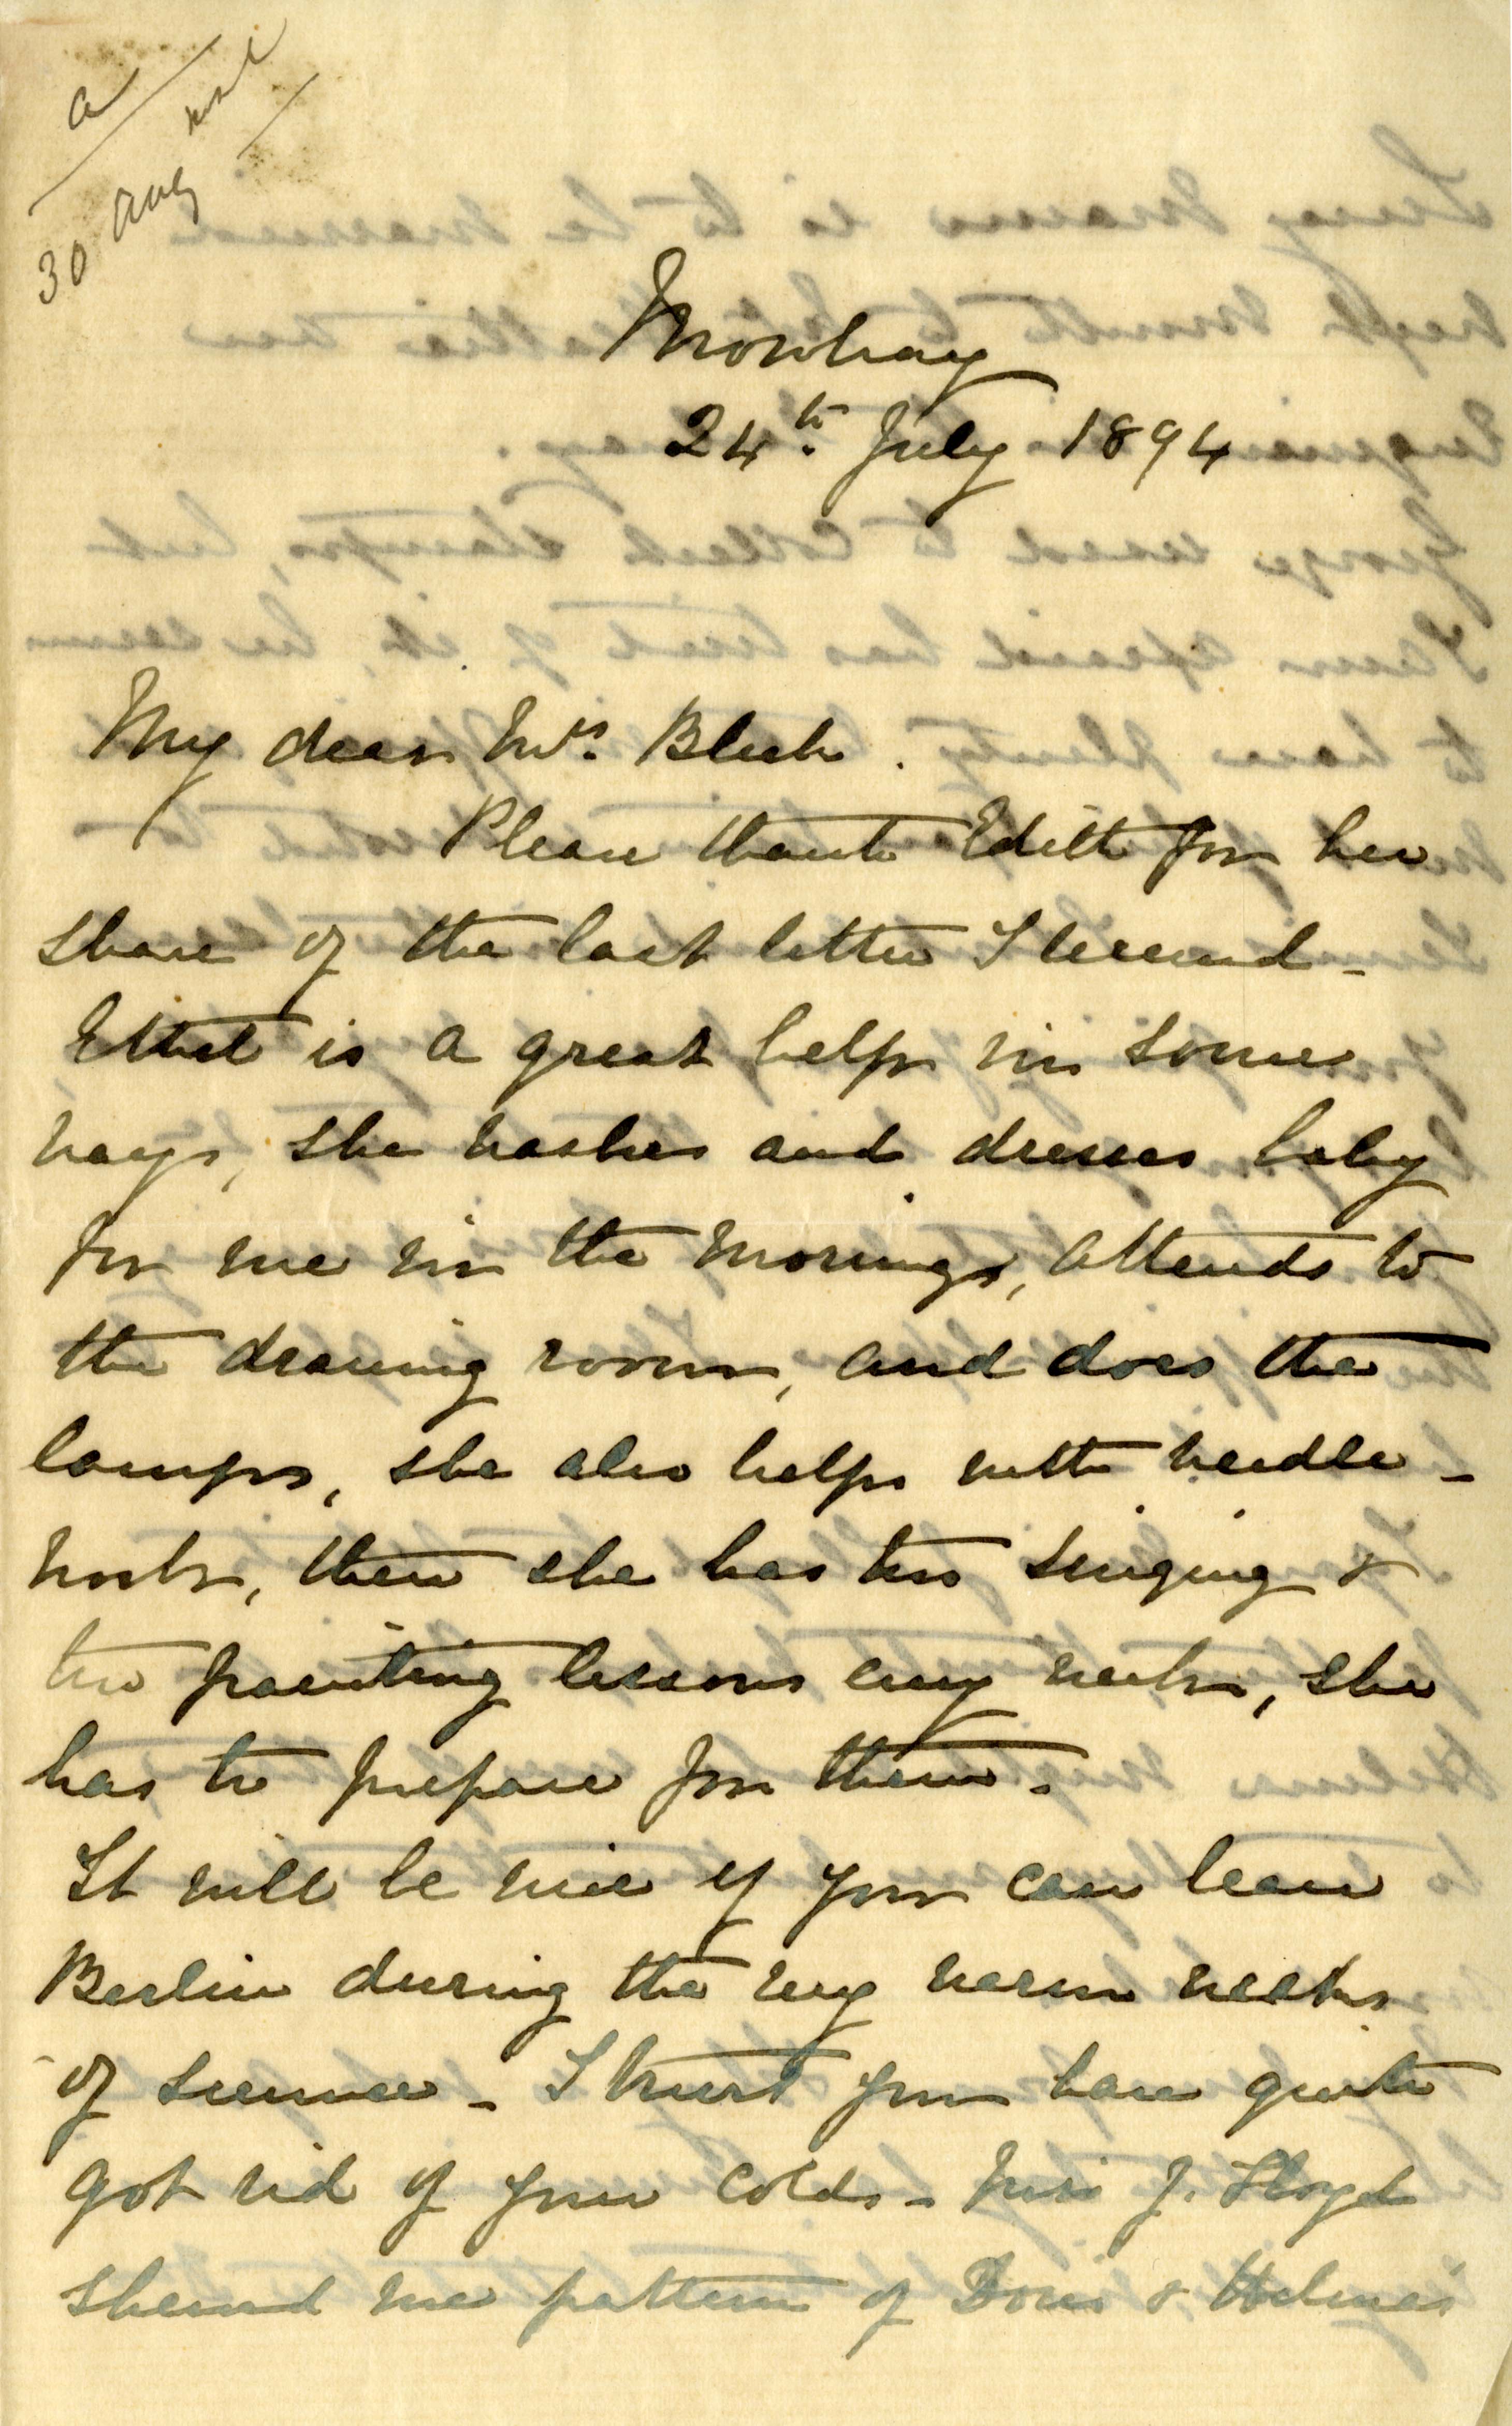 a
30 Aug
Mowbray
24th July 1894
My dear Mrs. Bleek.
Please thank Edith for her
share of the last letter I received -
Ethel is a great help in some
ways, she washes and dresses baby
for me in the mornings, attends to
the drawing room, and does the
lamps, she also helps with needle -
work, then she has two singing &
two painting lessons every week, she
has to prepare for them.
It will be nice if you can leave
Berlin during the very warm weeks
of summer - I trust you have quite
got rid of your colds - Miss J. Lloyd
showed me pattern of Doris & Helma's